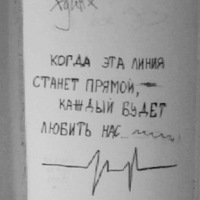 КОГДА ЭТА ЛИНИЯ
СТАНЕТ ПРЯМОЙ,
КАЖДЫЙ БУДЕТ
ЛЮБИТЬ НАС...